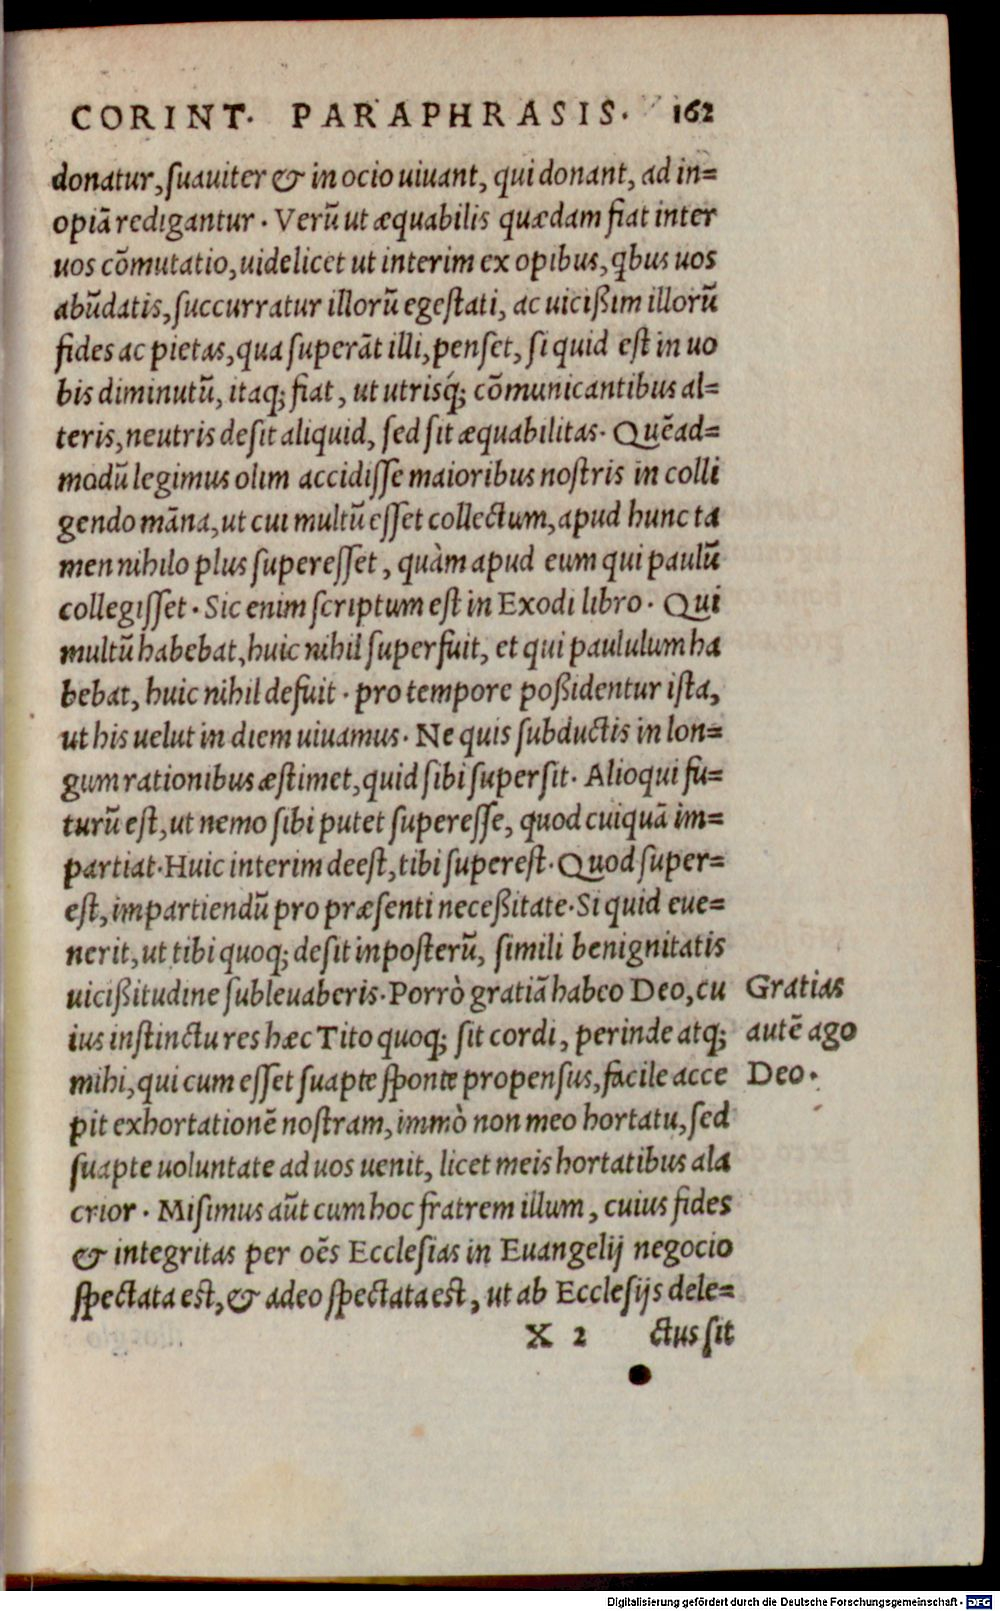 CORINT. PARAPHRASIS. 162
donatur, suauiter & in ocio uiuant, qui donant, ad in=
opiā redigantur. Verū ut æquabilis quædam fiat inter
uos cōmutatio, uidelicet ut interim ex opibus, qbus uos
abūdatis, succurratur illorū egestati, ac uicißim illorū
fides ac pietas, qua superāt illi, penset, si quid est in uo
bis diminutū, itaq; fiat, ut utrisq́; cōmunicantibus al=
teris, neutris desit aliquid, sed sit æquabilitas. Quēad=
modū legimus olim accidisse maioribus nostris in colli
gendo māna, ut cui multū esset collectum, apud hunc ta
men nihilo plus superesset, quàm apud eum qui paulū
collegisset. Sic enim scriptum est in Exodi libro. Qui
multū habebat, huic nihil superfuit, et qui paululum ha
bebat, huic nihil defuit. pro tempore poßidentur ista,
ut his uelut in diem uiuamus. Ne quis subductis in lon=
gum rationibus æstimet, quid sibi supersit. Alioqui fu=
turū est, ut nemo sibi putet superesse, quod cuiquā im=
partiat. Huic interim deest, tibi superest. Quod super=
est, impartiendū pro præsenti neceßitate. Si quid eue=
nerit, ut tibi quoq; desit inposterū, simili benignitatis
uicißitudine subleuaberis. Porrò gratiā habeo Deo, cu
ius instinctu res hæc Tito quoq; sit cordi, perinde atq;
mihi, qui cum esset suapte sponte propensus, facile acce
pit exhortationē nostram, immò non meo hortatu, sed
suapte uoluntate ad uos uenit, licet meis hortatibus ala
crior. Misimus aūt cum hoc fratrem illum, cuius fides
& integritas per oēs Ecclesias in Euangelij negocio
spectata est, & adeo spectata est, ut ab Ecclesijs dele=
X 2 ctus sit
Gratias
autē ago
Deo.
Digitalisierung gefördert durch die Deutsche Forschungsgemeinschaft - DFG